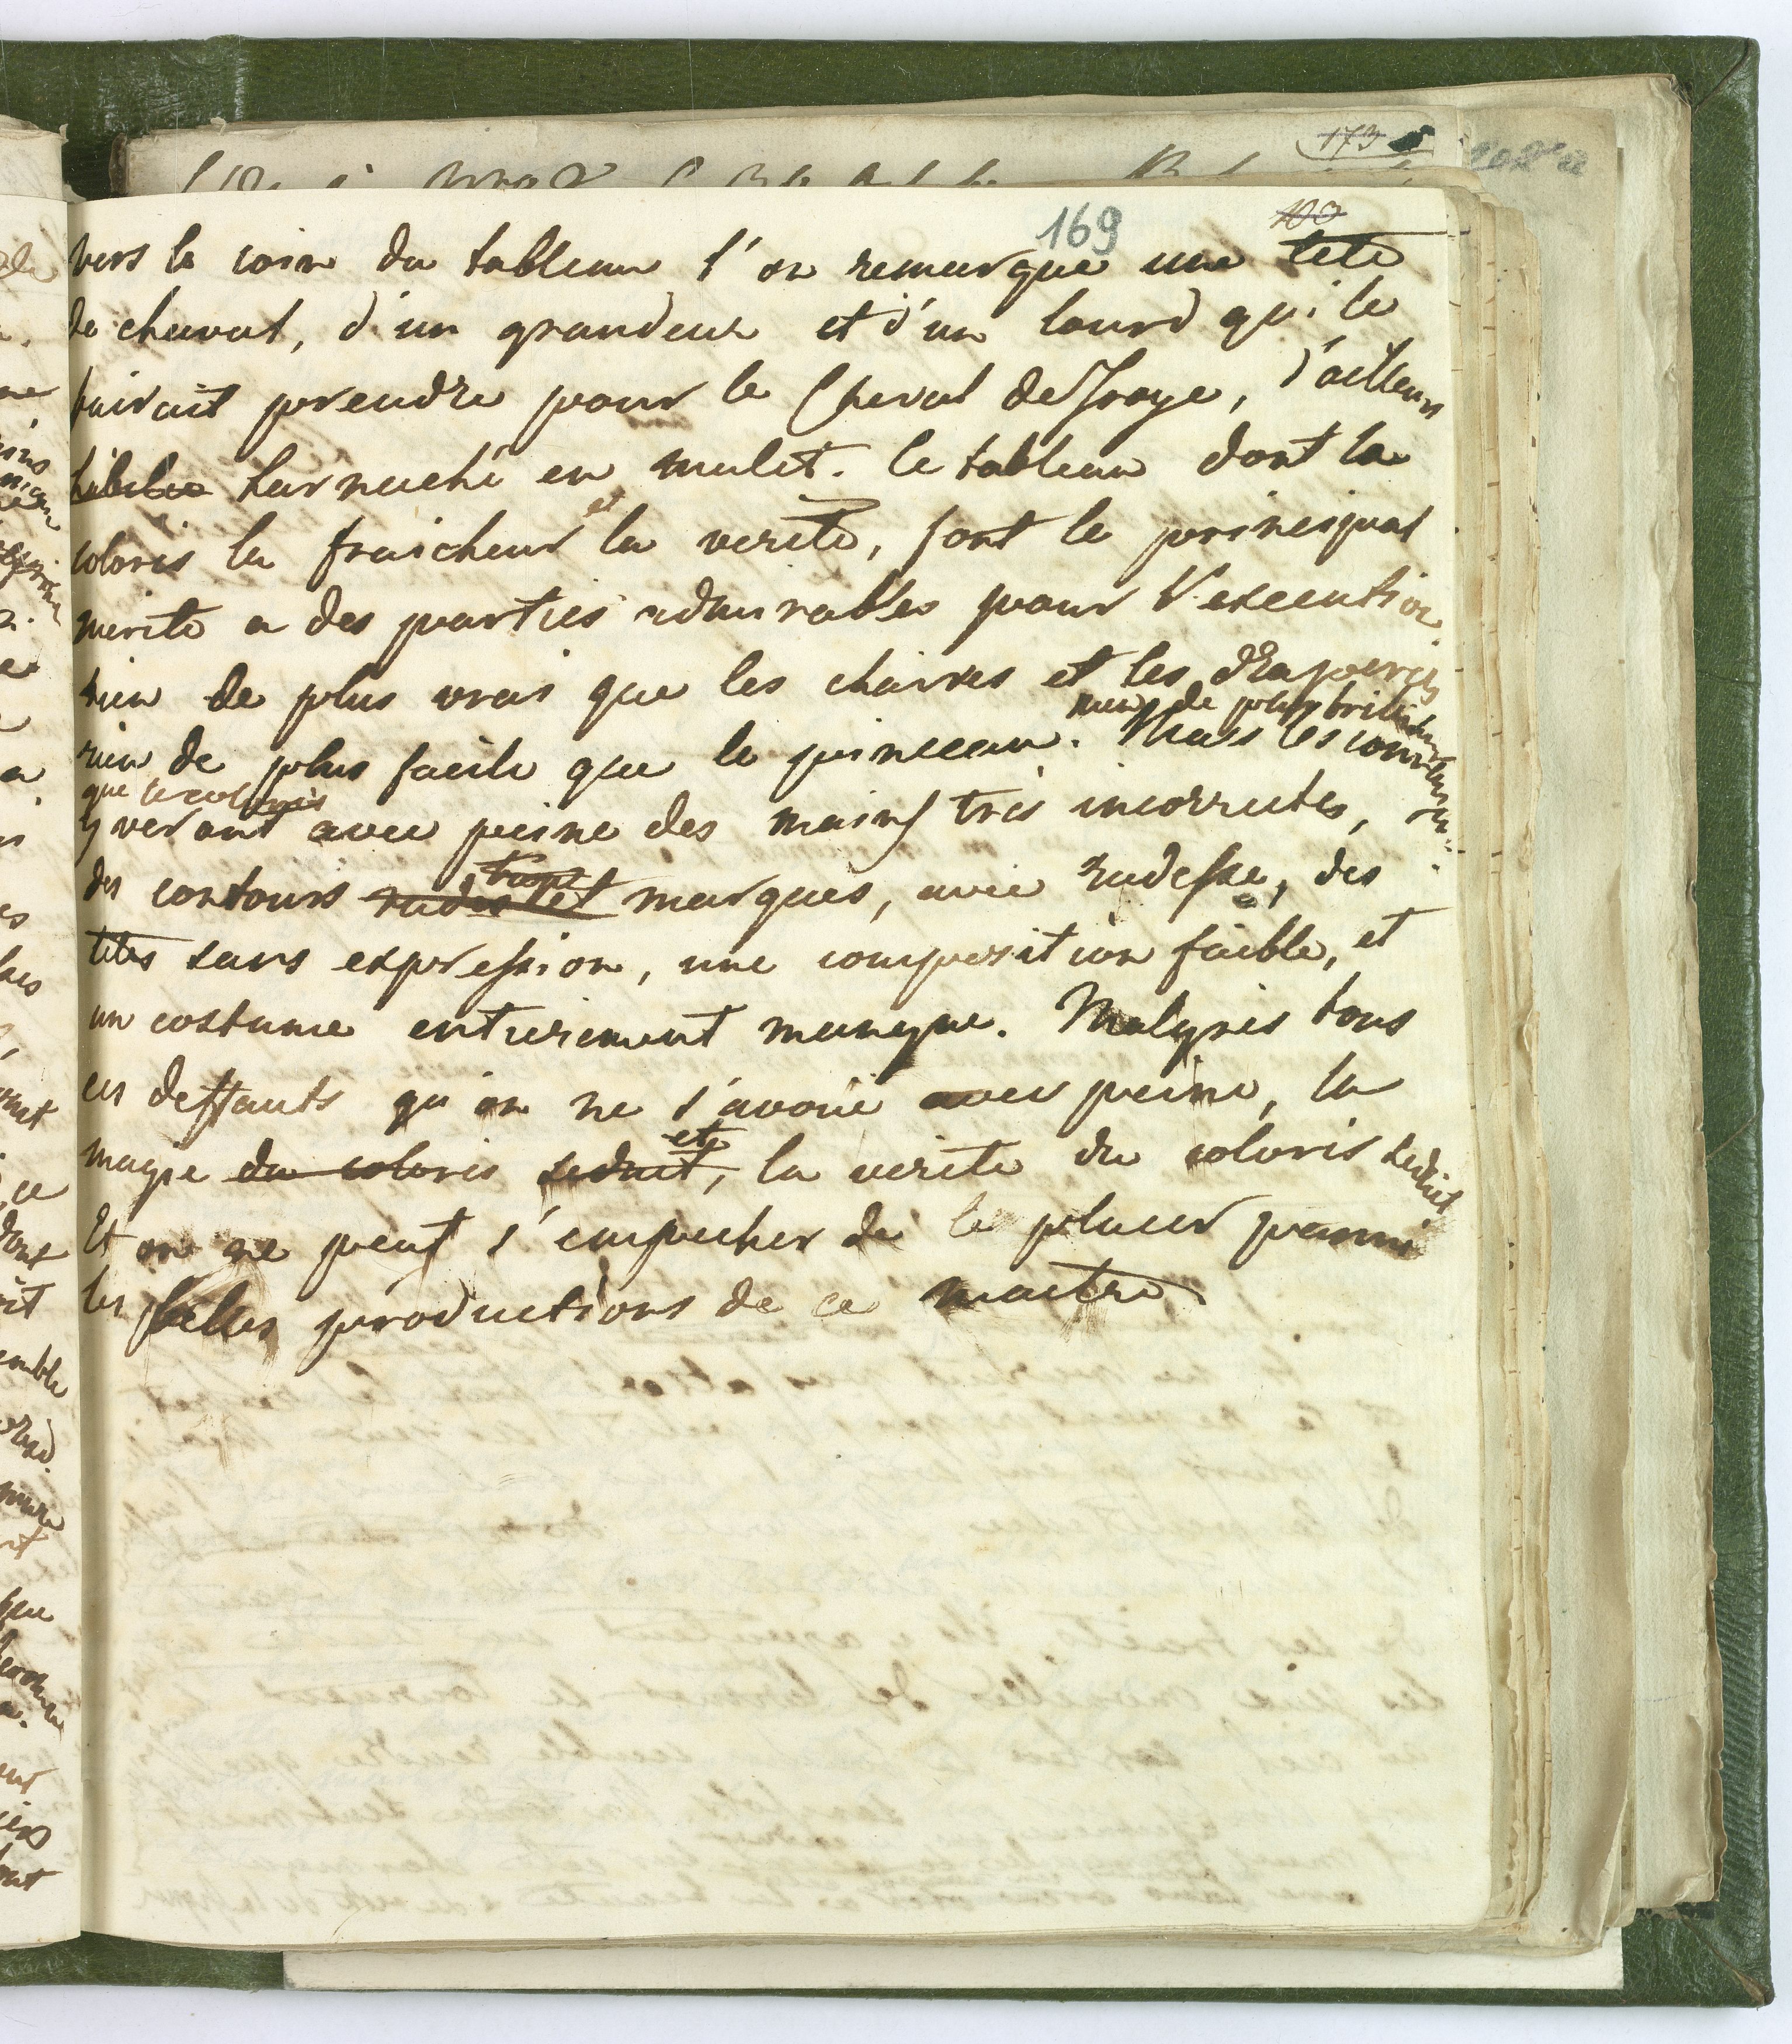 169
vers le coin du tableau l'on remarque une tete
de cheval, d'un grandeur et d'un lourd qui le
fairait prendre pour le Cheval de Troye, d'ailleurs
harnaché en mulet. le tableau dont la
coloris la fraicheur et la verité, font le principal
merite a des parties admirables pour l'execution
rien de plus vrai que les chaires et les draperies
rien de plus brillant
rien de plus facile que le pinceau. Mais les connaisseurs
que le coloris
y veront avec peine des mains très incorrectes,
des contours rudes et trop marques, avec rudesse, des
tetes sans expression, une composition faible, et
un costume entierement manque. Malgres tous
ces deffauts qu'on ne s'avoue avec peine, la
magie du coloris seduit, et la verite du coloris seduit
Et on ne peut s'empecher de le placer parmi
les belles productions de ce maitre